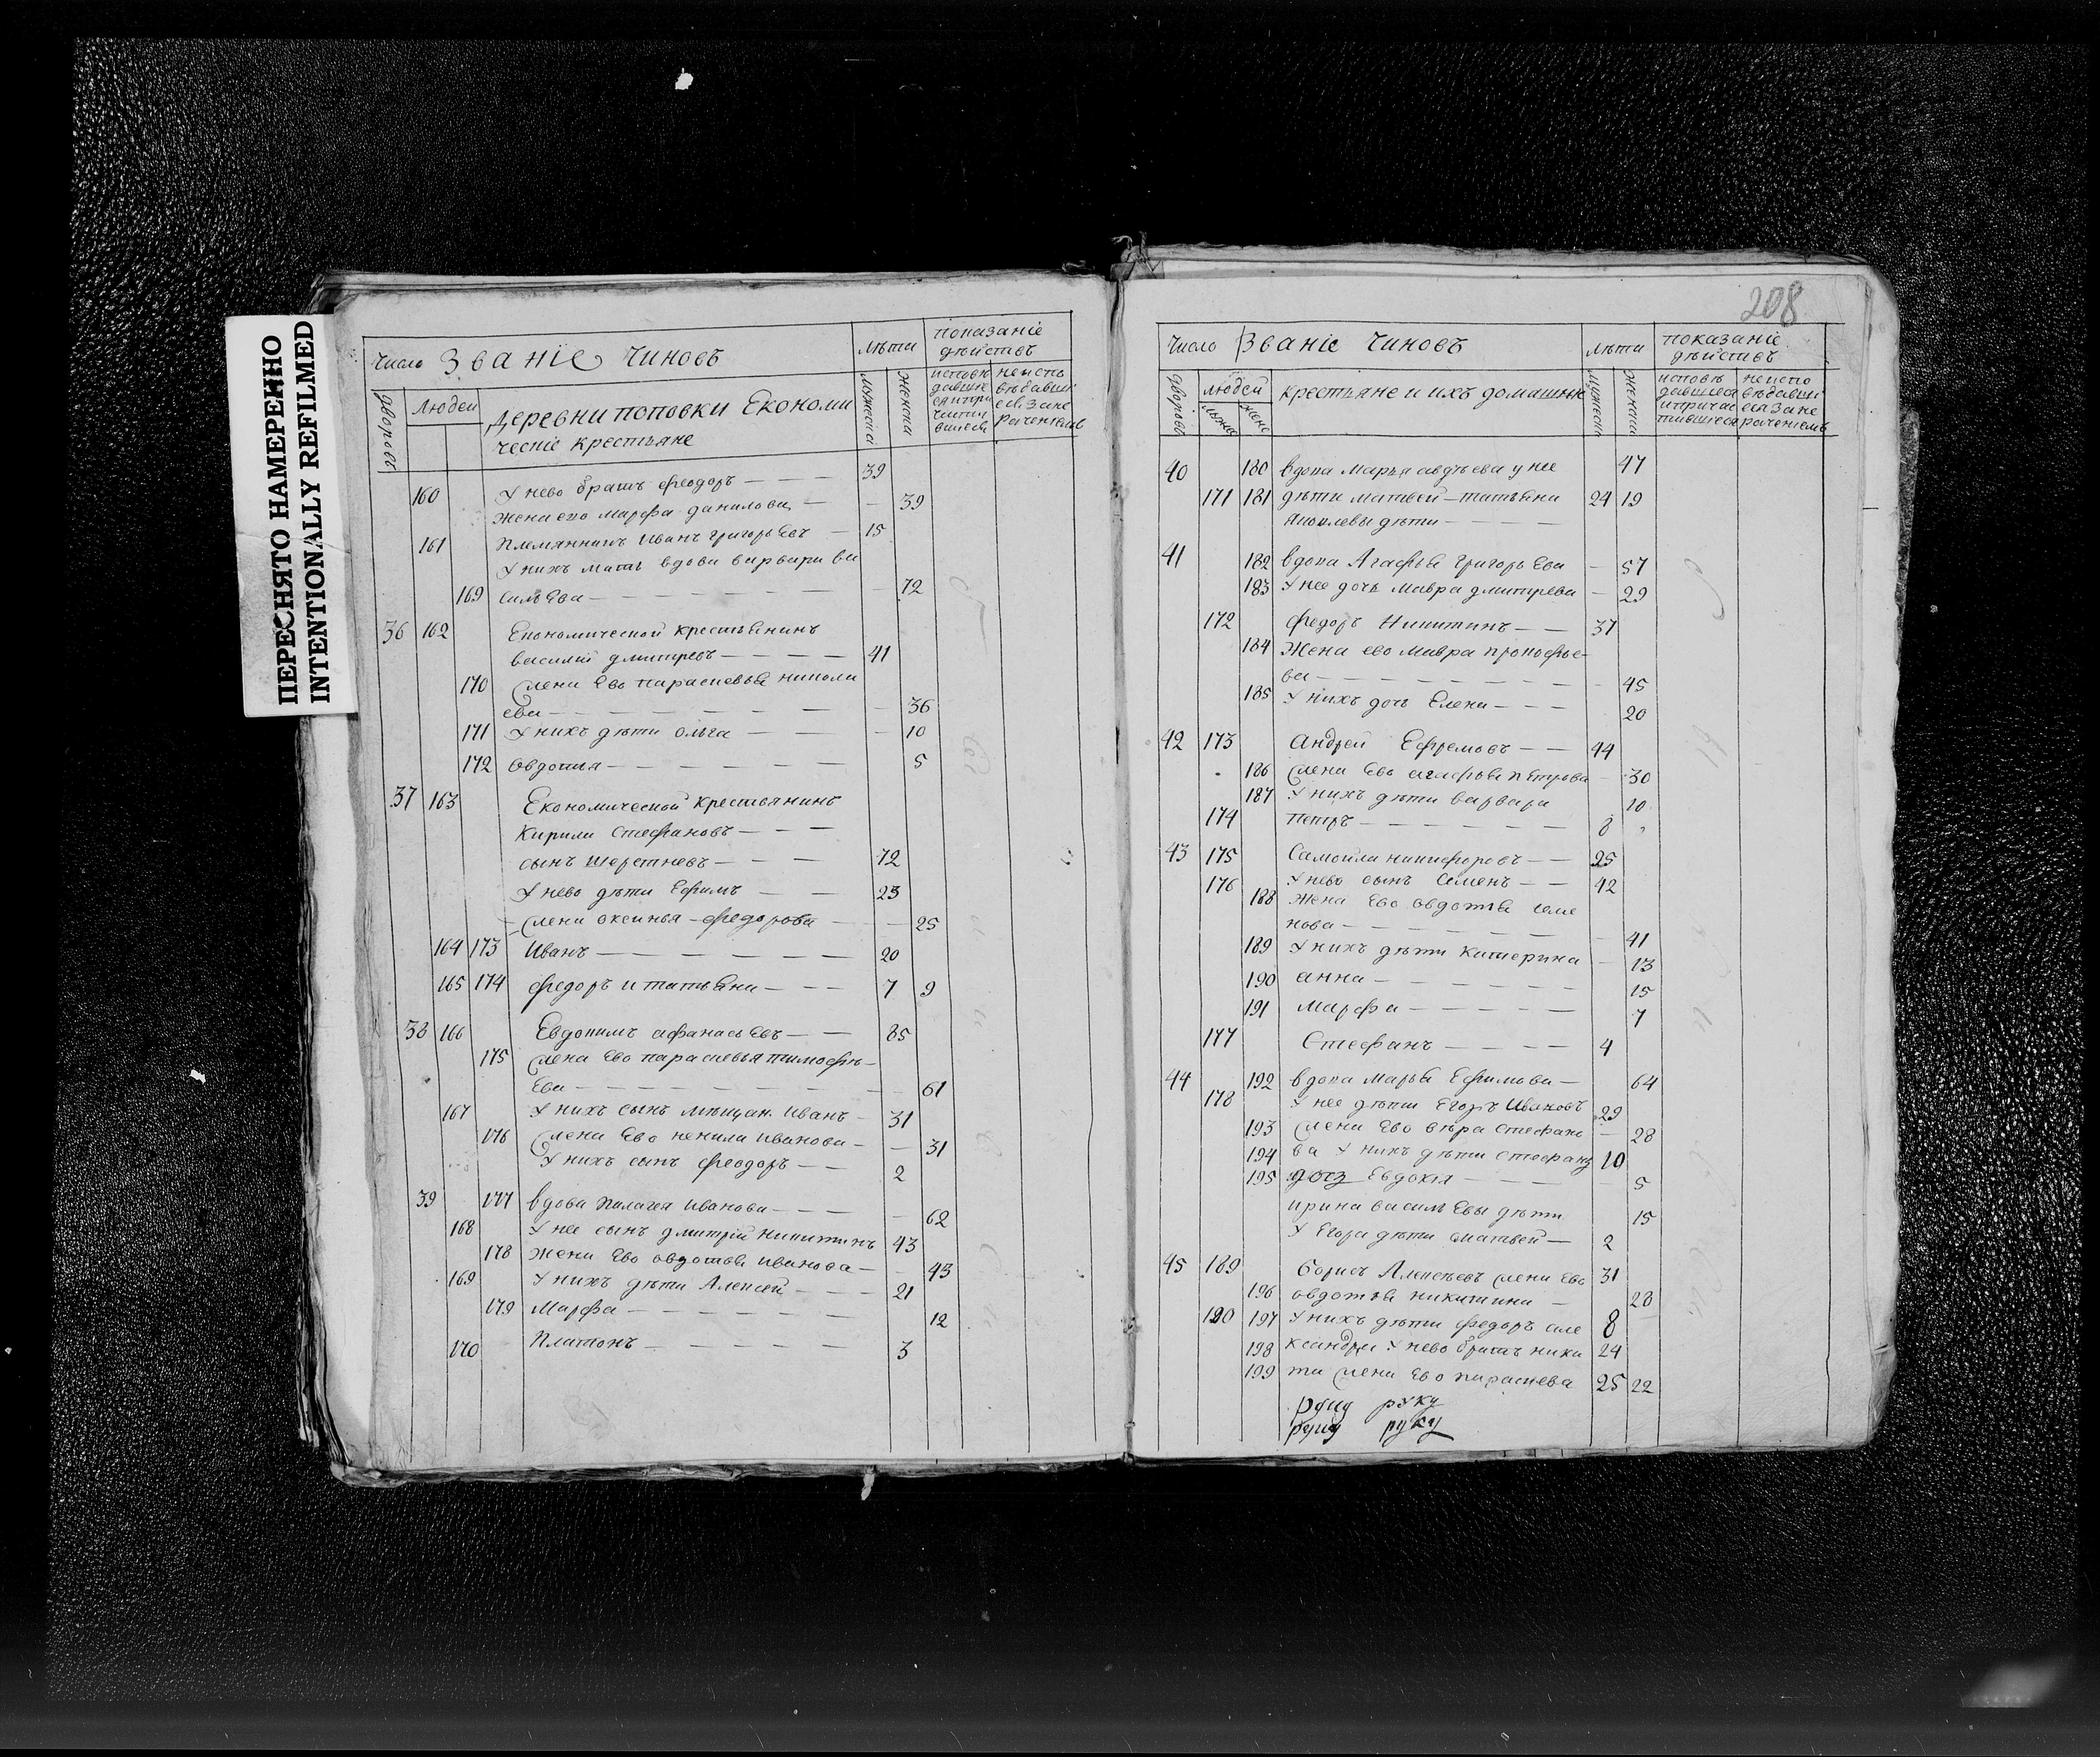 ПЕРЕСНЯТО НАМЕРЕННО
INTENTIONALLY REFILMED
Число Званіе Чиновъ Лѣта показаніе дѣйствъ
дворовъ Людей Деревни поповки Економи
ческіе крестьяне
мужеска женска
У нево братъ феодоръ — 39
160 Жена ево Марфа данилова — 39
161 Племянникъ Иванъ григорьевъ — 15
У нихъ мать вдова варвара ва
169 сильева — 72
36 162 Економической крестьянинъ
василий дмитревъ — 41
170 жена Ево парасковья никола
ева — 36
171 У нихъ дѣти ольга — 10
172 Овдотья — 5
37 163 Економической крестьянинъ
Кирила Стефановъ —
сынъ — 72
У нево дѣти Ефимъ — 23
жена оксинья федорова — 25
164 173 Иванъ — 20
165 174 федоръ и татьяна — 7 9
38 166 Евдокимъ афанасьевъ — 85
175 жена Ево парасковья тимофѣ-
ева — 61
167 У нихъ сынъ Иванъ — 31
176 жена Ево ненила иванова — 31
У нихъ сынъ феодоръ — 2
39 177 вдова пилагея иванова — 62
168 У нее сынъ дмитрій никитинъ 43
178 жена Ево овдотья иванова — 43
169 У нихъ дѣти Алексей — 21
179 Марфа — 12
170 Платонъ — 3
208
Число Званіе Чиновъ лѣта показаніе дѣйствъ
дворовъ людей крестьяне и ихъ домашніи
мужеска женска
40 180 вдова Марья авдѣева у нее 47
171 181 дѣти матвей — татьяна 24 19
яковлевы дѣти —
41 182 вдова Агафья григорьева — 57
183 У нее дочь мавра дмитрева — 29
172 федоръ Никитинъ — 37
184 Жена ево мавра прокофье-
ва — 45
185 У нихъ дочь Елена — 20
42 173 андрей Ефремовъ — 44
186 жена Ево агафья петрова — 30
187 У нихъ дѣти варвара 10
174 петръ — 8
43 175 Самойла никифоровъ — 25
176 У нево сынъ Семенъ — 42
188 жена Ево овдотья семе
нова — 41
189 У нихъ дѣти катерина — 13
190 анна — 15
191 марфа — 7
177 Стефанъ — 4
44 192 вдова марья Ефимова — 64
178 У нее дѣти Егоръ Ивановъ 29
193 жена Ево вѣра стефано — 28
194 ва У нихъ дѣти стефанъ 10
195 дочь Евдокія — 5
ирина васильевы дѣти 15
У Егора дѣти матвей — 2
45 189 борисъ Алексеевъ жена Ево 31
196 овдотья никитина — 28
190 197 У нихъ дѣти федоръ але 8
198 ксандра У нево братъ ники 24
199 та жена Ево параскева 25 22
руку
руку